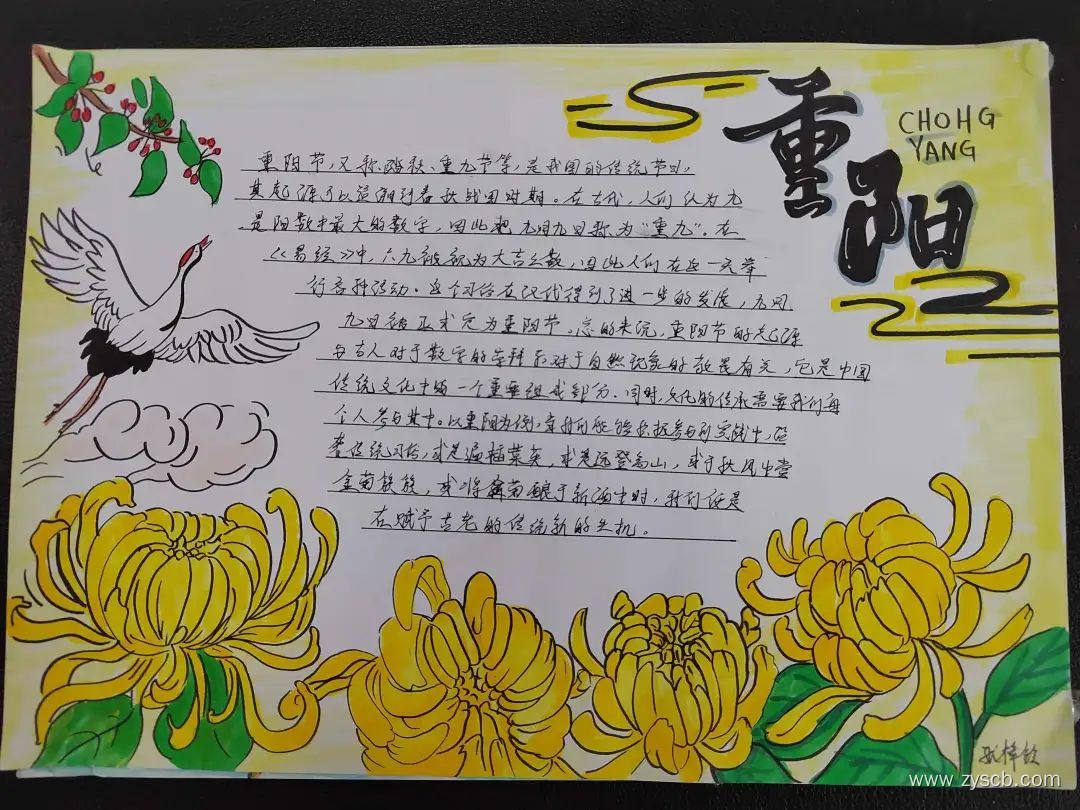 重阳
CHOHG
YANG
重阳节，又称踏秋、重九节等，是我国的传统节日，
其起源可以追溯到春秋战国时期。在古代，人们认为九
是阳数中最大的数字，因此把九月九日称为“重九”。在
《易经》中，六九被视为大吉之数，因此人们在这一天举
行各种活动。这个习俗在汉代得到了进一步的发展，九月
九日被正式定为重阳节。总的来说，重阳节的起源
与古人对于数字的崇拜和对于自然现象的敬畏有关，它是中国
传统文化中的一个重要组成部分。同时，文化的传承需要我们每
个人参与其中。以重阳为例，当我们能够积极参与到实践中，
传统习俗，或是遍插茱萸，或是远登高山，或于秋风中赏
金菊簇簇，或将菊酿于新酒中时，我们便是
在赋予古老的传统新的生机。
www.zyscb.com